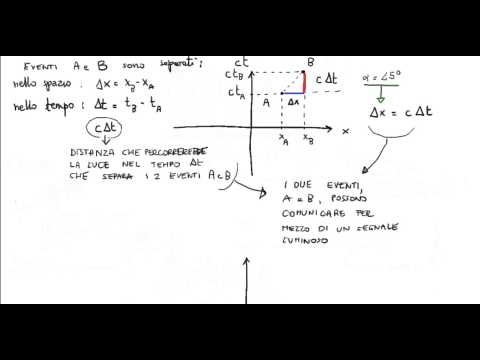 EVENTI A e B SONO separati:
nello spazio: Δx = x_B - x_A
nello tempo: Δt = t_B - t_A
cΔt
DISTANZA CHE PERCORREREBBE
LA LUCE NEL TEMPO Δt
CHE SEPARA I 2 EVENTI A e B
ct
ct_B
ct_A
B
cΔt
A
Δx
x_A
x_B
x
α = 45°
Δx = cΔt
I DUE EVENTI,
A e B, POSSONO
COMUNICARE PER
MEZZO DI UN SEGNALE
LUMINOSO